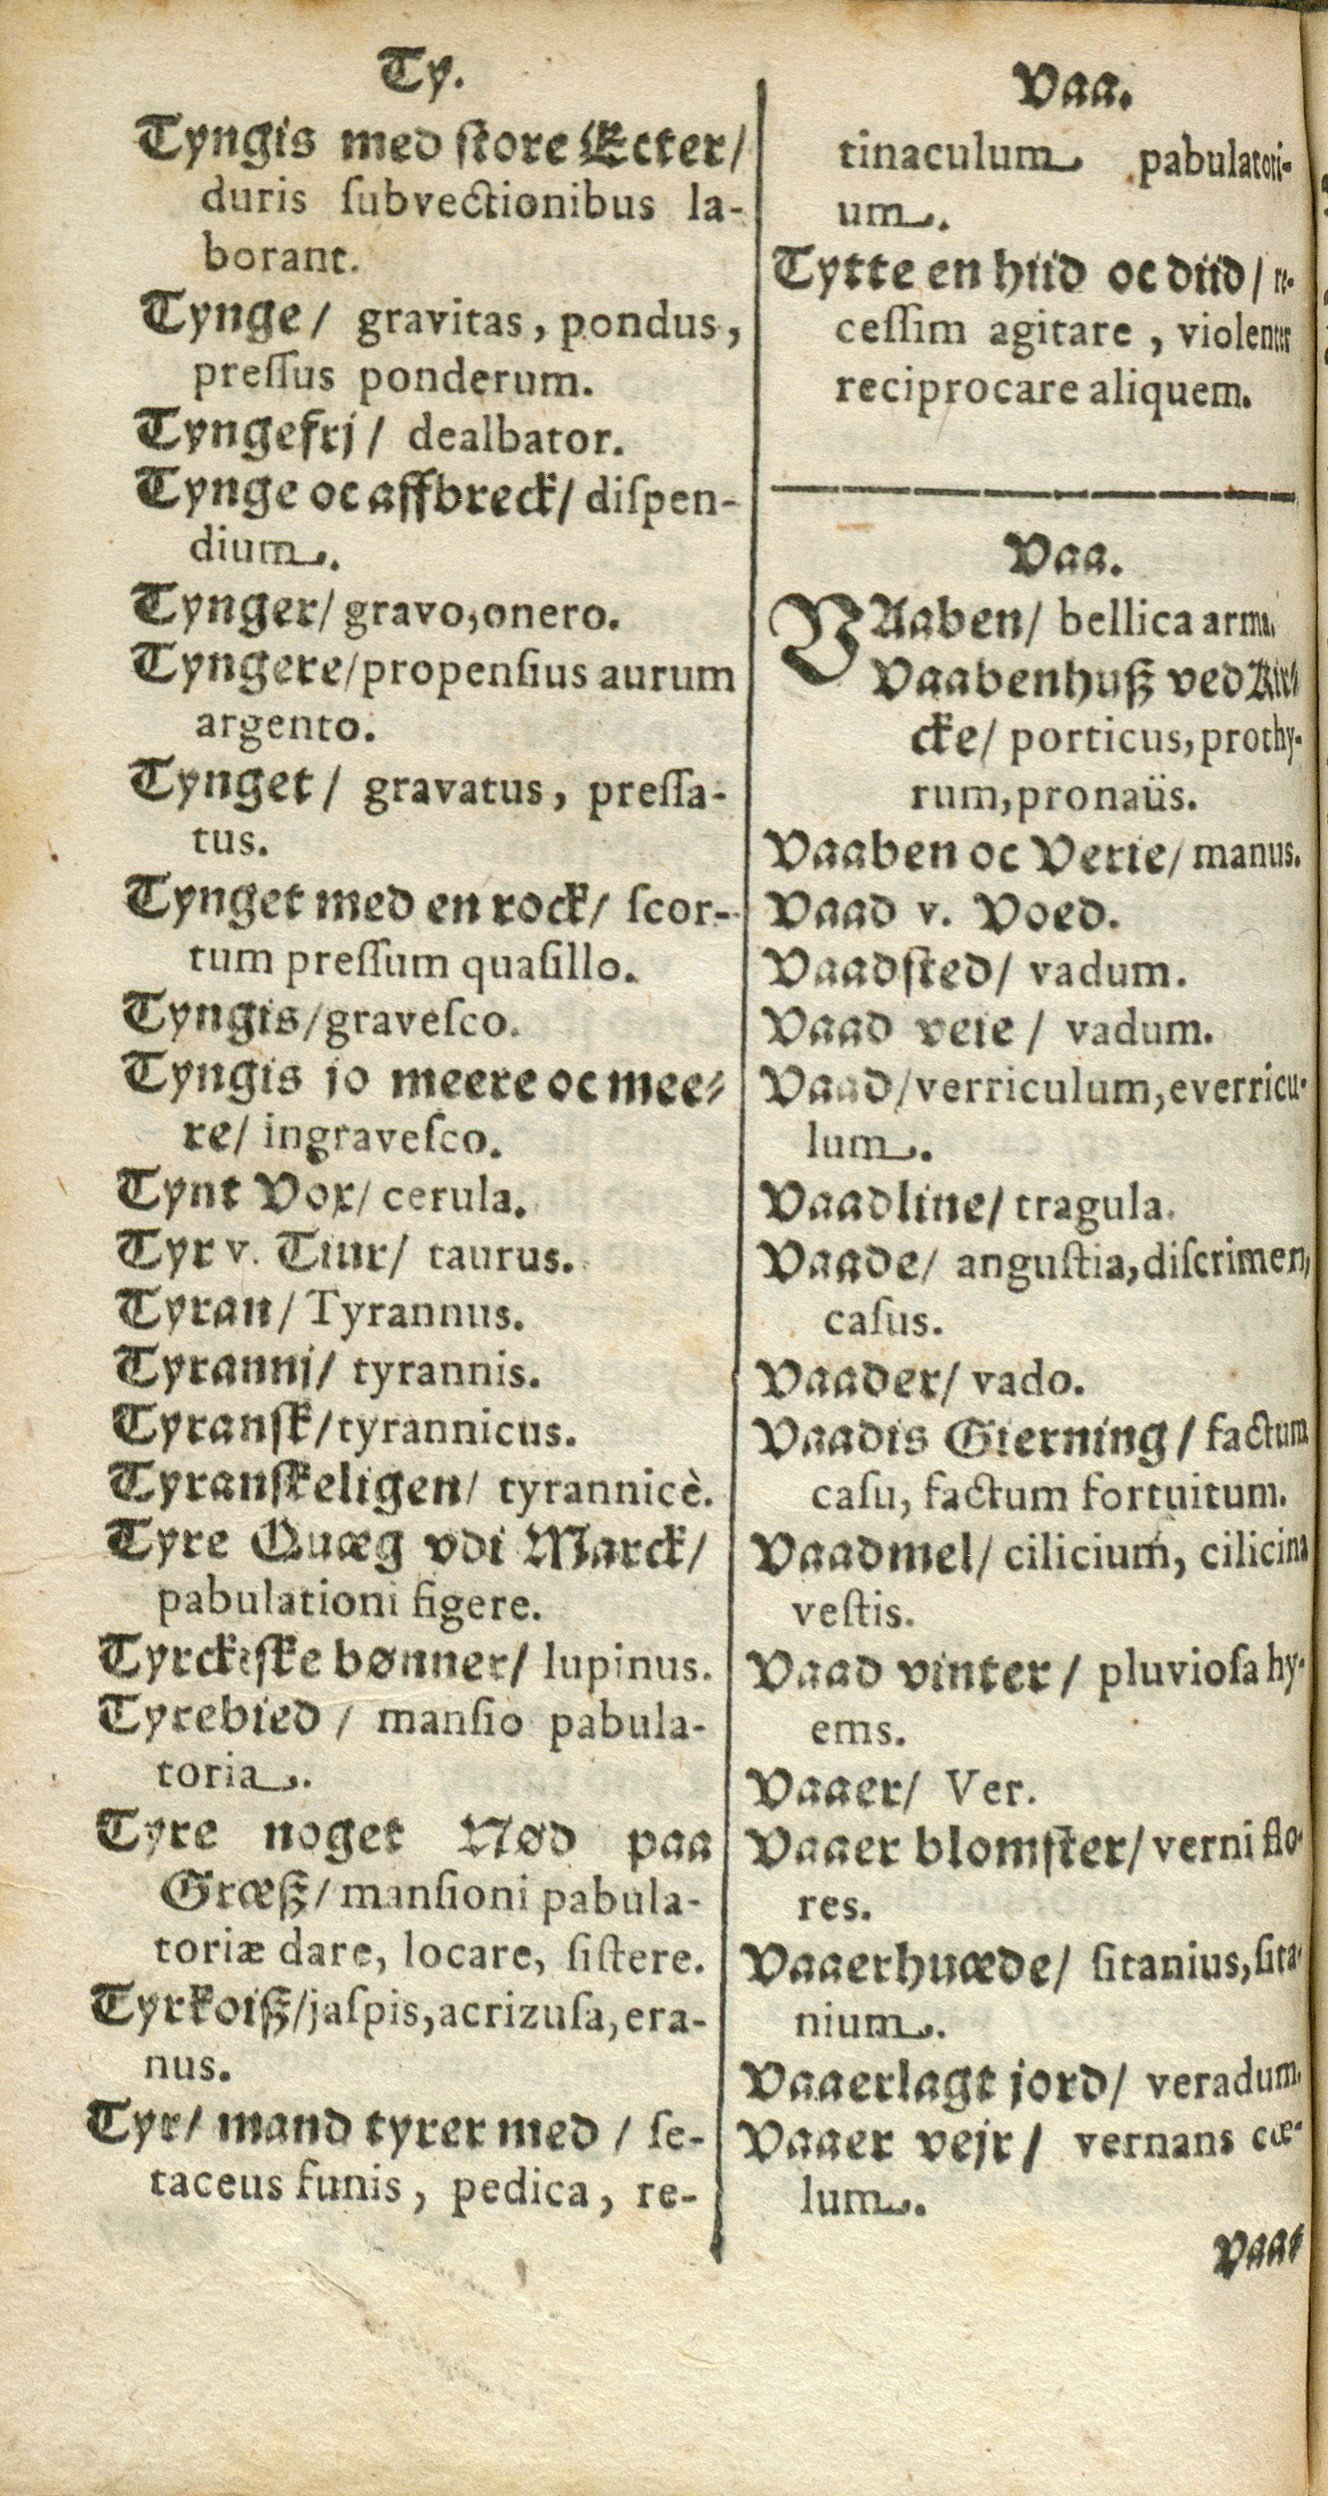 Ty.
Tyngis med store Ecter/
duris ſubvectionibus la-
borant.
Tynge/ gravitas, pondus,
preſſus ponderum.
Tyngefrj/ dealbator.
Tynge oc affbreck/ diſpen-
dium.
Tynger/ gravo, onero.
Tyngere/ propenſius aurum
argento.
Tynget/ gravatus, preſſa-
tus.
Tynget med en rock/ ſcor-
tum preſſum quaſillo.
Tyngis/ graveſco.
Tyngis jo meere oc mee-
re/ ingraveſco.
Tynt Vox/ cerula.
Tyr v. Tiur/ taurus.
Tyran/ Tyrannus.
Tyranni/ tyrannis.
Tyranſk/ tyrannicus.
Tyranſkeligen/ tyrannicè.
Tyre Quæg vdi Marck/
pabulationi figere.
Tyrckeſke bønner/ lupinus.
Tyrebied/ manſio pabula-
toria.
Tyre noget Nød paa
Græß/ manſioni pabula-
toriæ dare, locare, ſiſtere.
Tyrkoiß/ jaſpis, acrizuſa, era-
nus.
Tyr/ mand tyrer med/ ſe-
taceus funis, pedica, re-
Vaa.
tinaculum pabulatori-
um.
Tytte en hiid oc diid/ re-
ceſſim agitare, violenter
reciprocare aliquem.
Vaa.
VAaben/ bellica arma.
Vaabenhuß ved Kir-
cke/ porticus, prothy-
rum, pronaüs.
Vaaben oc Verie/ manus.
Vaad v. Voed.
Vaadſted/ vadum.
Vaad veie/ vadum.
Vaad/ verriculum, everricu-
lum.
Vaadline/ tragula.
Vaade/ anguſtia, diſcrimen,
caſus.
Vaader/ vado.
Vaadis Gierning/ factum
caſu, factum fortuitum.
Vaadmel/ cilicium, cilicina
veſtis.
Vaad vinter/ pluvioſa hy-
ems.
Vaaer/ Ver.
Vaaer blomſter/ verni flo-
res.
Vaaerhuæde/ ſitanius, ſita-
nium.
Vaaerlagt jord/ veradum.
Vaaer vejr/ vernans cœ-
lum.